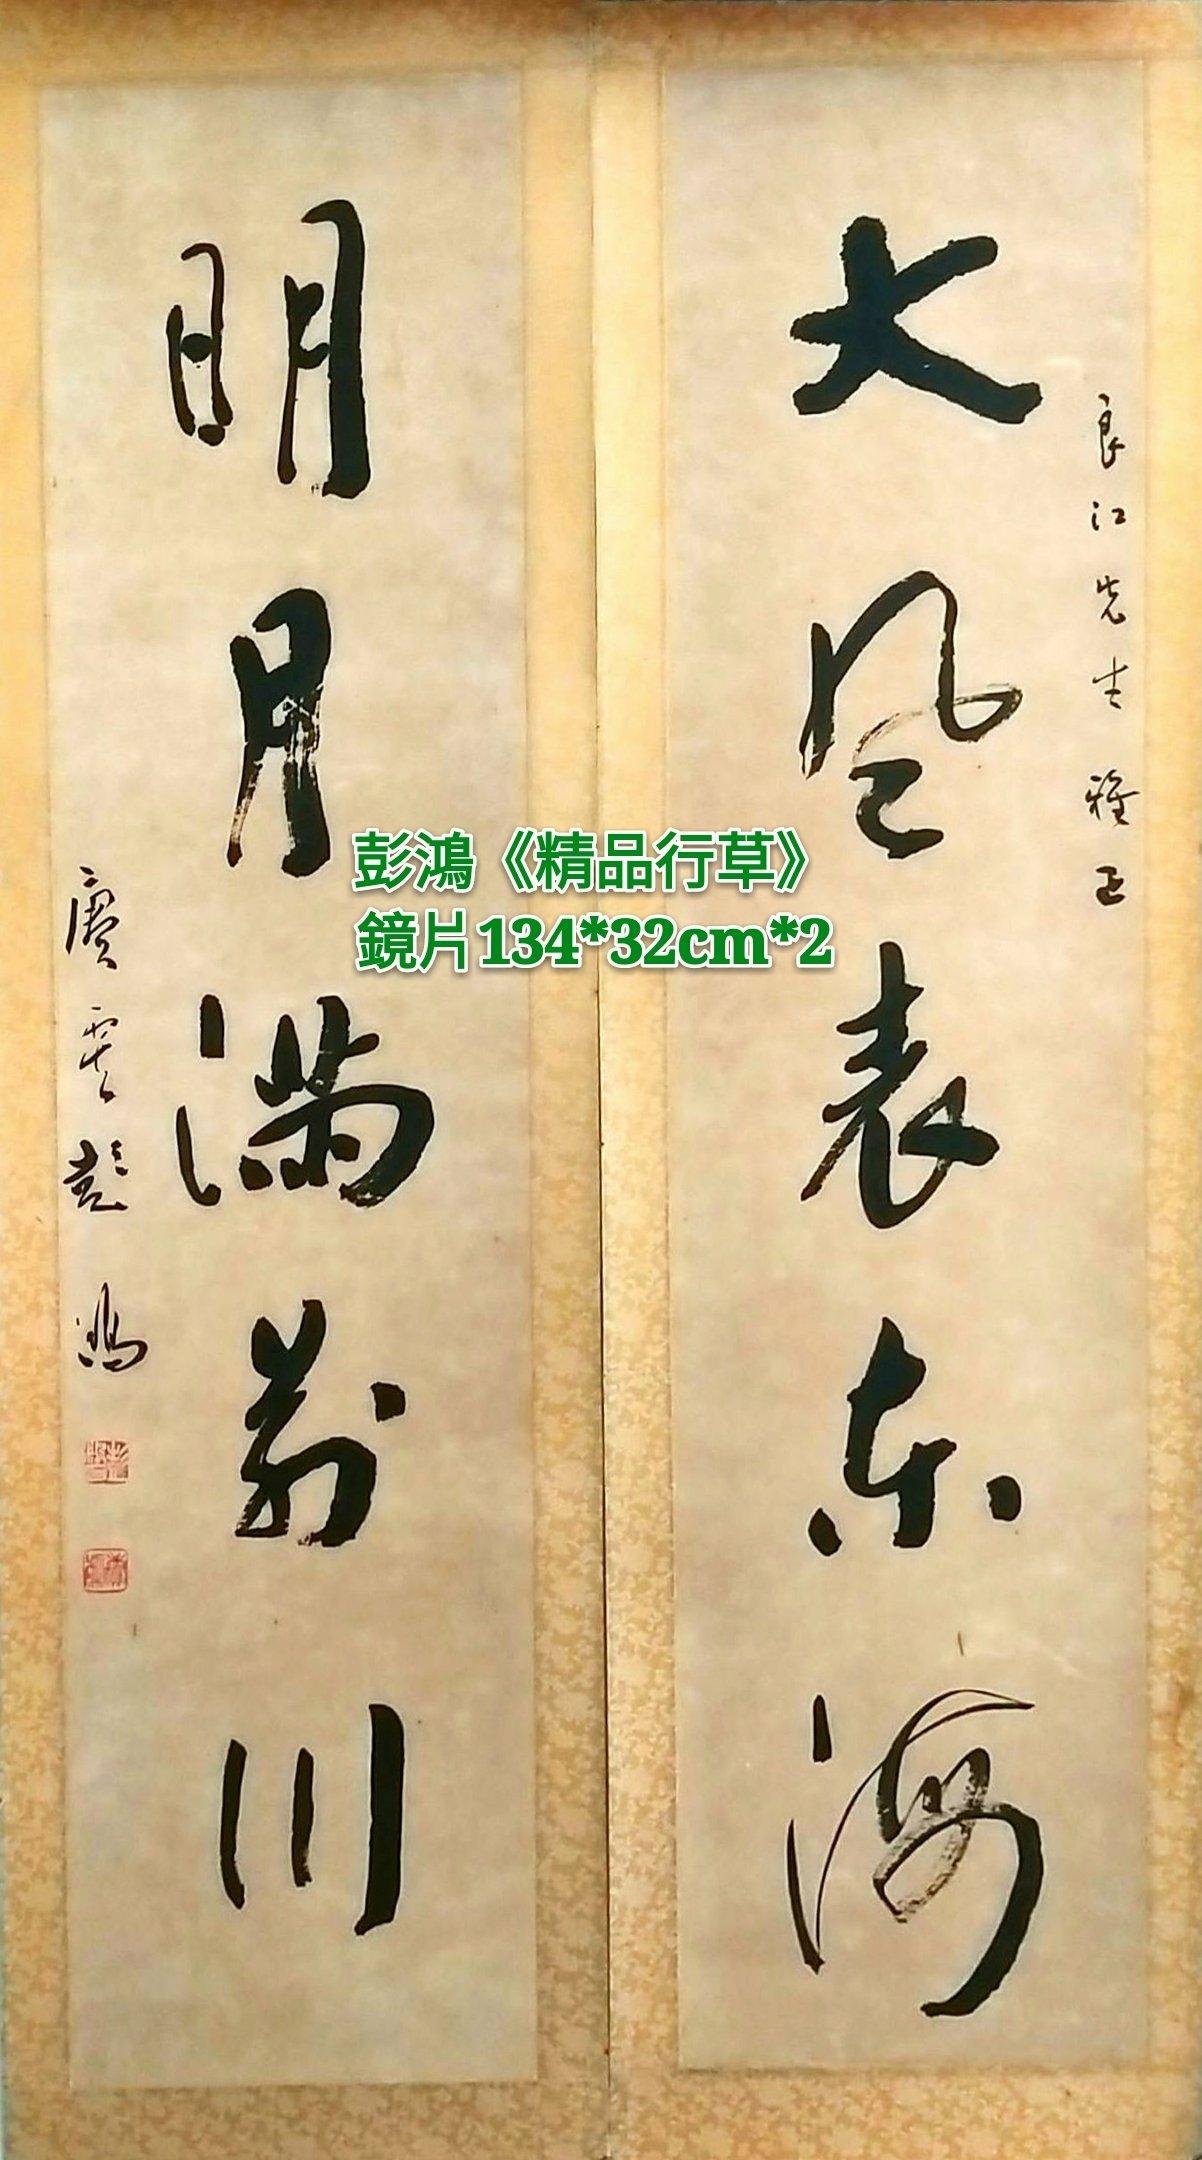 良江先生雅正
大风表东海
明月满前川
賡雲彭鴻
彭鴻《精品行草》
鏡片134*32cm*2